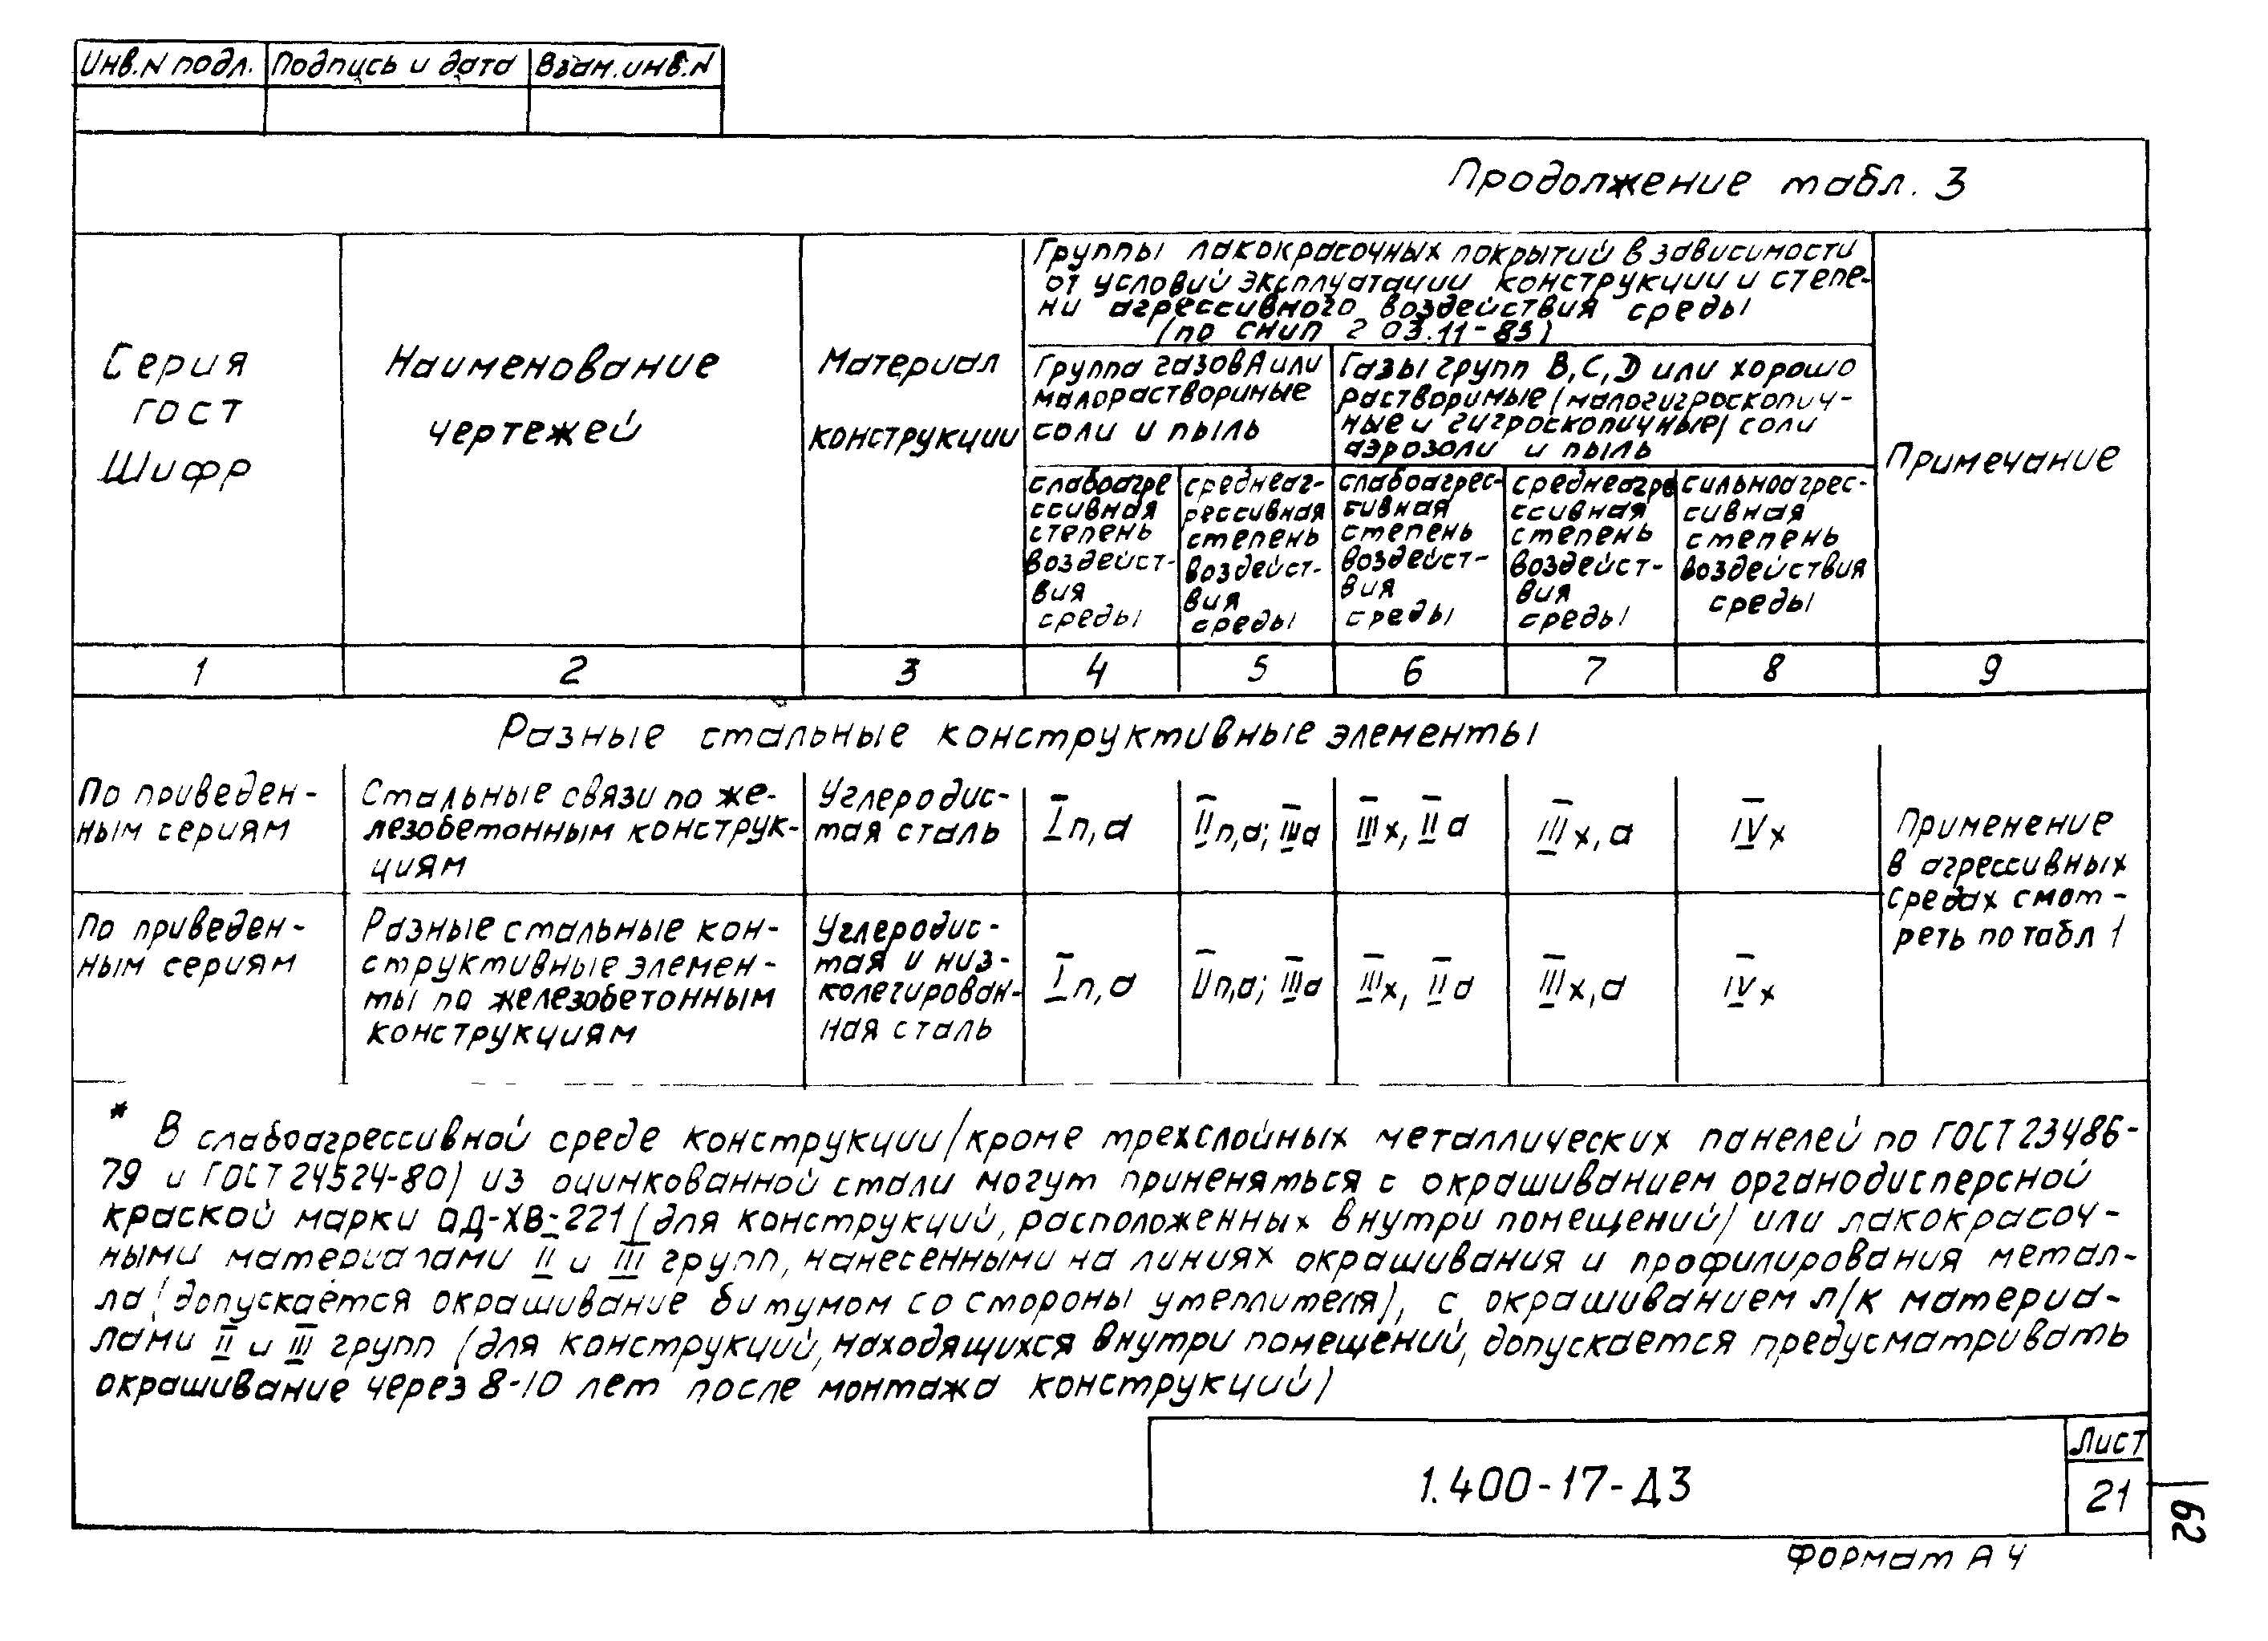 Инв.N подл. Подпись и дата Взам.инв.N
Продолжение табл. 3
Серия
ГОСТ
Шифр
Наименование
чертежей
Материал
конструкции
Группы лакокрасочных покрытий в зависимости
от условий эксплуатации конструкции и степе-
ни агрессивного воздействия среды
(по СНиП 2 03.11-85)
Группа газов А или
малорастворимые
соли и пыль
Газы групп В, С, D или хорошо
растворимые (малогигроскопич-
ные и гигроскопичные) соли
аэрозоли и пыль
слабоагре
ссивная
степень
воздейст-
вия
среды
среднеаг-
рессивная
степень
воздейст-
вия
среды
слабоагрес-
сивная
степень
воздейст-
вия
среды
среднеагре
ссивная
степень
воздейст-
вия
среды
сильноагрес-
сивная
степень
воздействия
среды
Примечание
1 2 3 4 5 6 7 8 9
Разные стальные конструктивные элементы
По приведен-
ным сериям
Стальные связи по же-
лезобетонным конструк-
циям
Углеродис-
тая сталь
I п, а
II п, а; III а
III х, II а
III х, а
IV х
Применение
в агрессивных
средах смот-
реть по табл 1
По приведен-
ным сериям
Разные стальные кон-
структивные элемен-
ты по железобетонным
конструкциям
Углеродис-
тая и низ-
колегирован-
ная сталь
I п, а
II п, а; III а
III х, II а
III х, а
IV х
* В слабоагрессивной среде конструкции (кроме трехслойных металлических панелей по ГОСТ 23486-
79 и ГОСТ 24524-80) из оцинкованной стали могут применяться с окрашиванием органодисперсной
краской марки ОД-ХВ-221 (для конструкций, расположенных внутри помещений) или лакокрасоч-
ными материалами II и III групп, нанесенными на линиях окрашивания и профилирования метал-
ла (допускается окрашивание битумом со стороны утеплителя), с окрашиванием л/к материа-
лами II и III групп (для конструкций, находящихся внутри помещений, допускается предусматривать
окрашивание через 8-10 лет после монтажа конструкций)
1.400-17-Д3
Лист
21
62
Формат А4